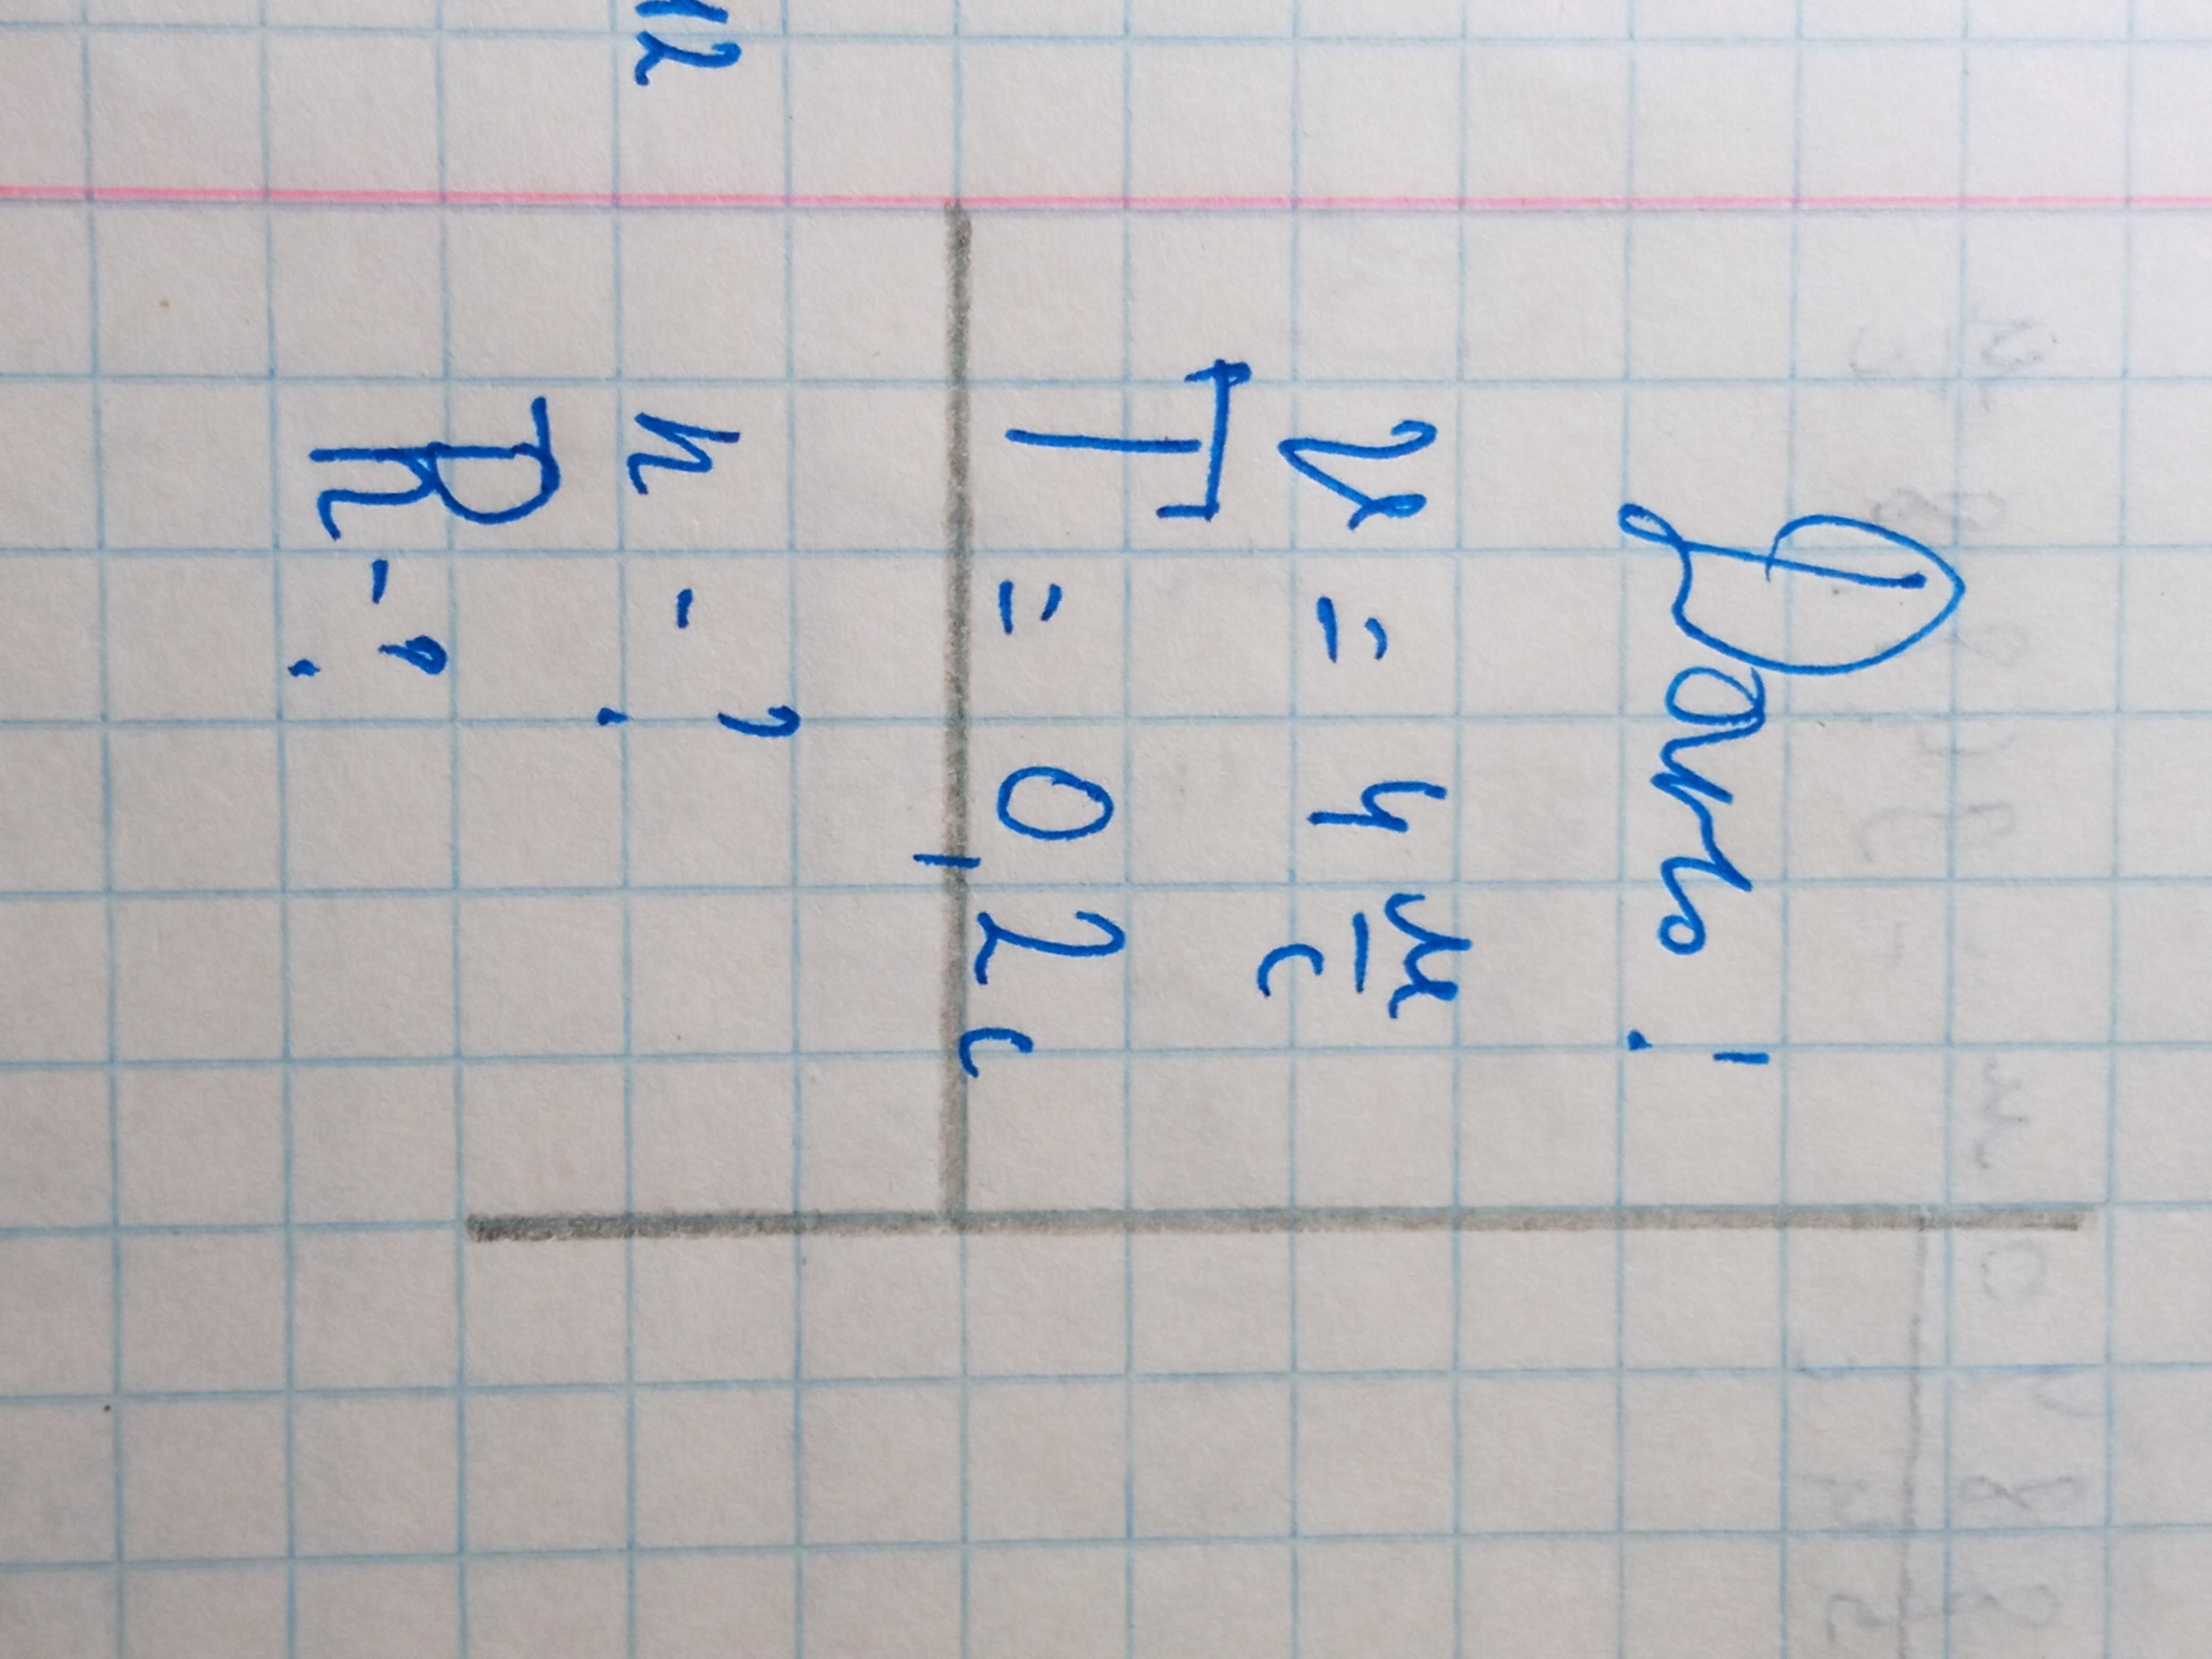 Дано:
υ = 4 м/с
T = 0,2 c
n - ?
R - ?